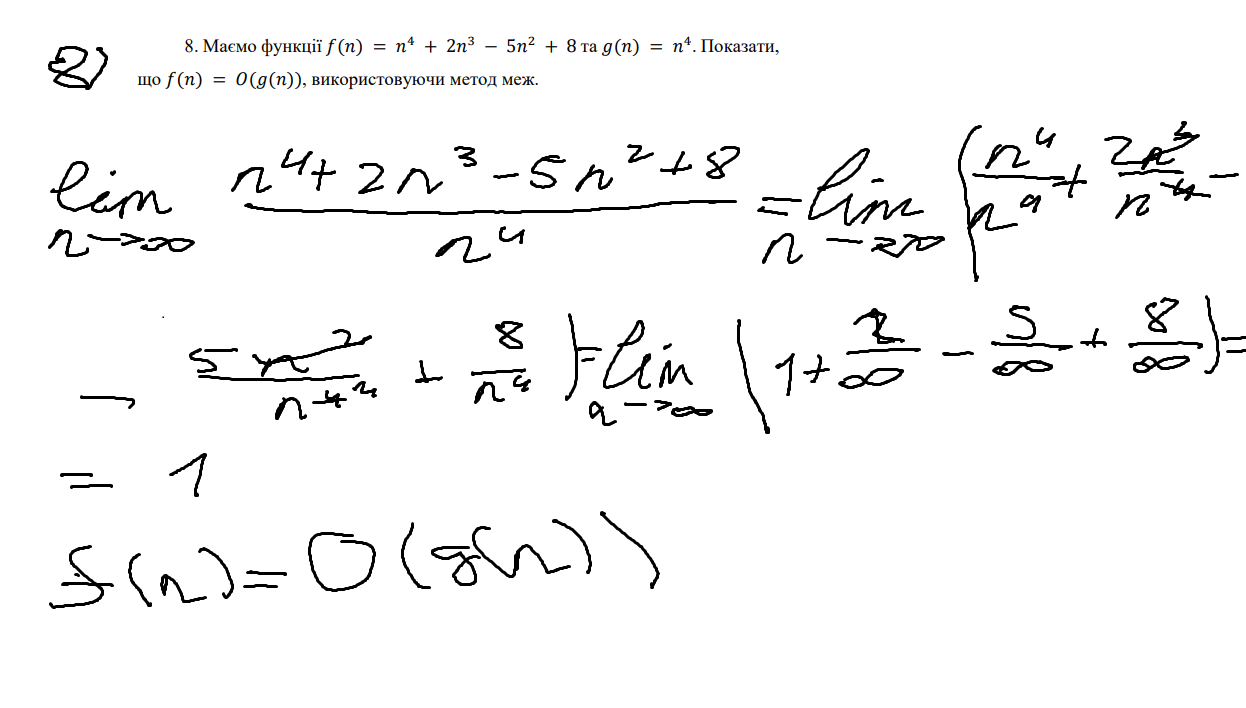 2) 8. Маємо функції f(n) = n⁴ + 2n³ − 5n² + 8 та g(n) = n⁴. Показати,
що f(n) = O(g(n)), використовуючи метод меж.
lim n→∞ (n⁴ + 2n³ − 5n² + 8)/n⁴ = lim n→∞ (n⁴/n⁴ + 2n³/n⁴ −
− 5n²/n⁴ ² + 8/n⁴) = lim n→∞ (1 + 2/∞ − 5/∞ + 8/∞) =
= 1
f(n) = O(g(n))